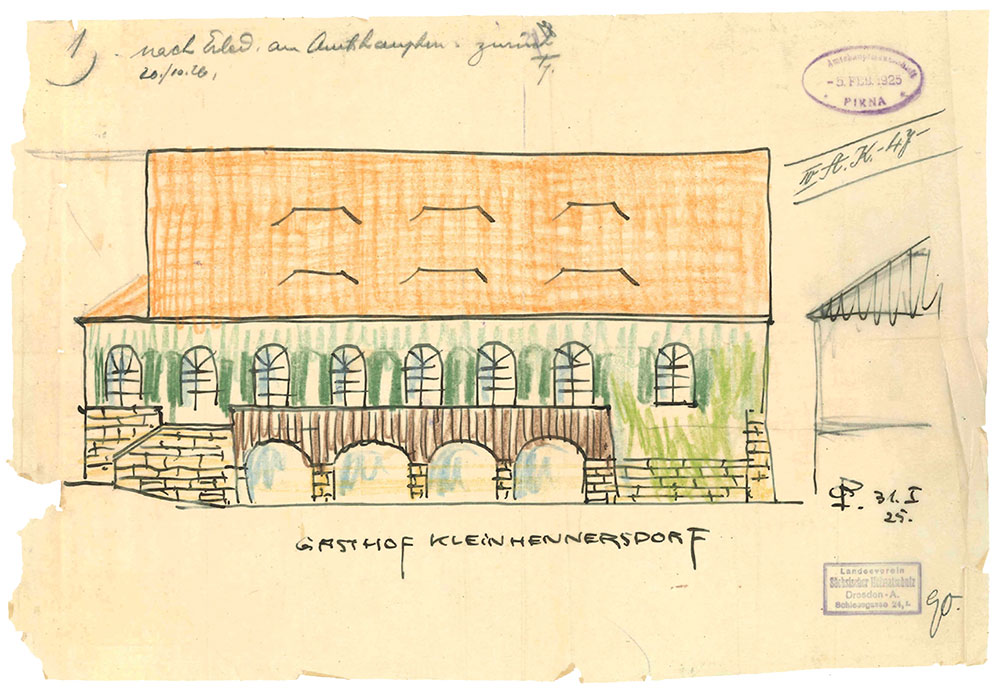 1)
nach Erled. an Amtshauptm. zurück
20./10.26.
Amtshauptmannschaft
-5. FEB. 1925
PIRNA
GASTHOF KLEINHENNERSDORF
31. I
25.
Landesverein
Sächsischer Heimatschutz
Dresden-A.
Schiessgasse 24, I.